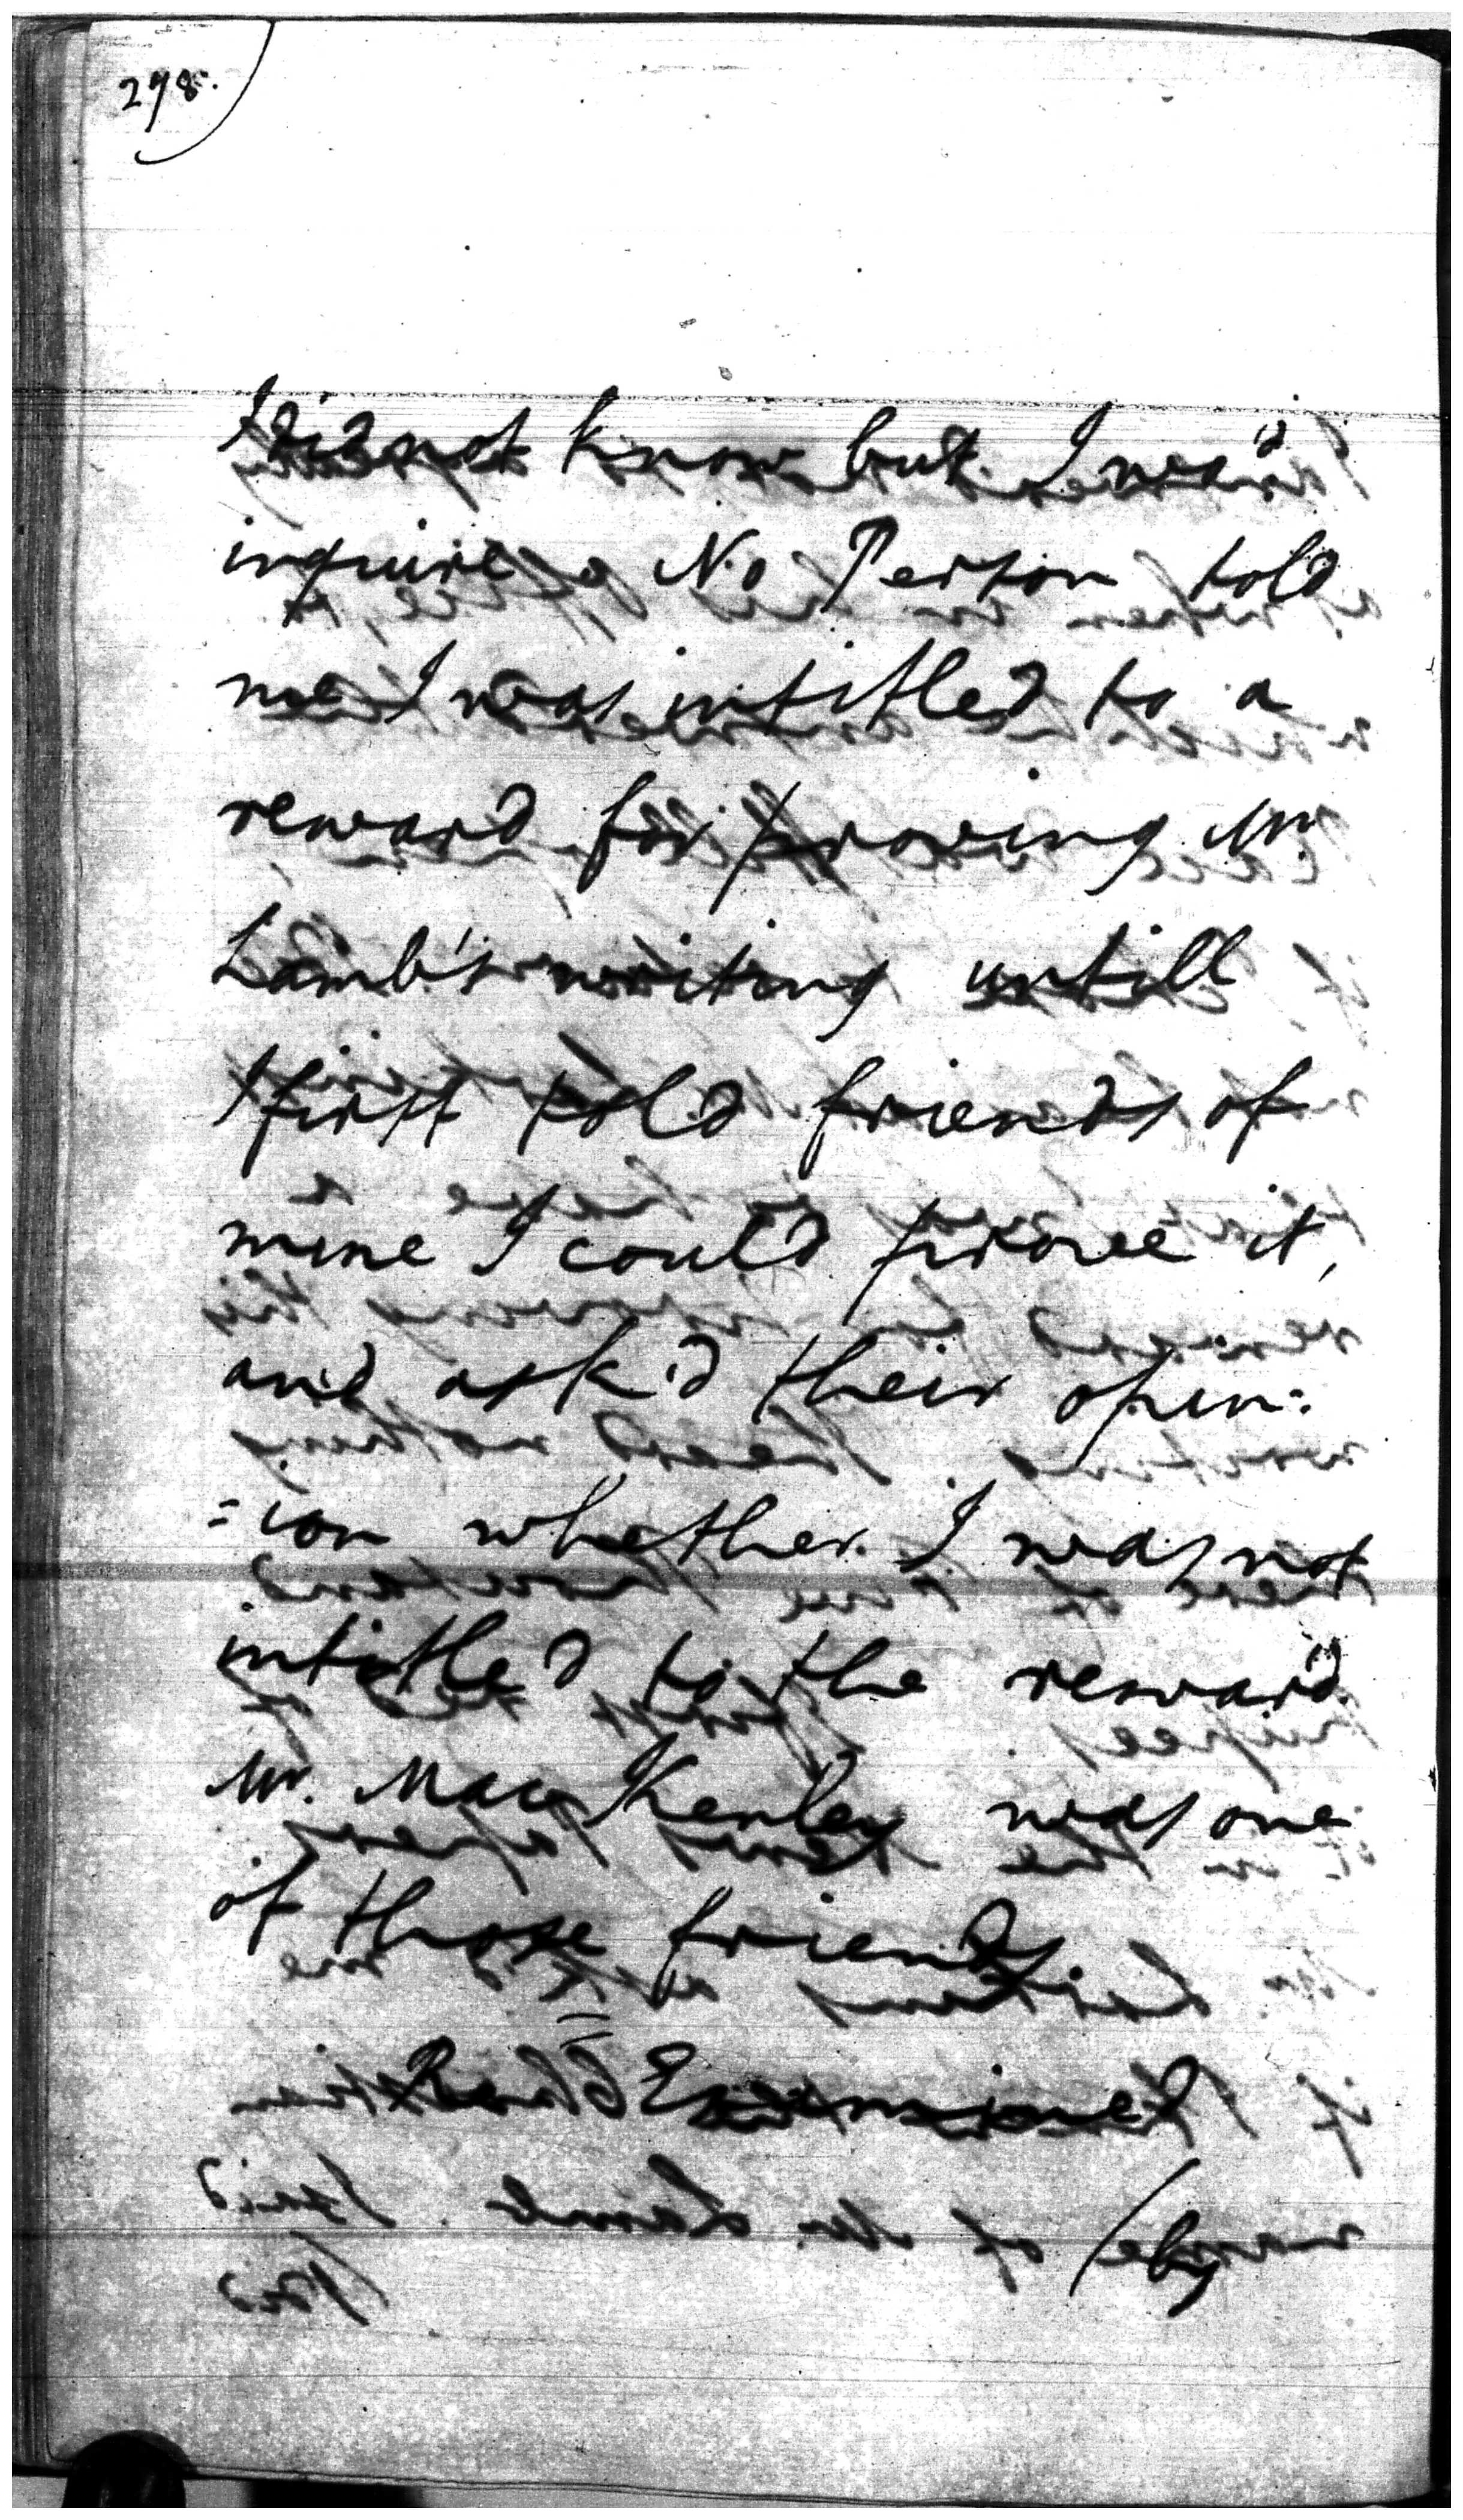 278.
I did not know but I wo'd
inquire, No Person told
me I was intitled to a
reward for proving Mr
Lamb's writing untill
I first told friends of
mine I could proove it,
and ask'd their opin:
=ion whether I was not
intitled to the reward.
Mr. Mac Kenley was one
of those friends
Re Examined
(by